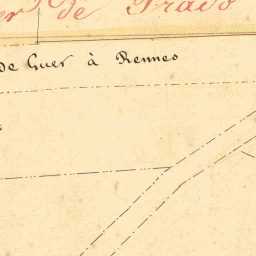 er de Prado
De Guer à Rennes